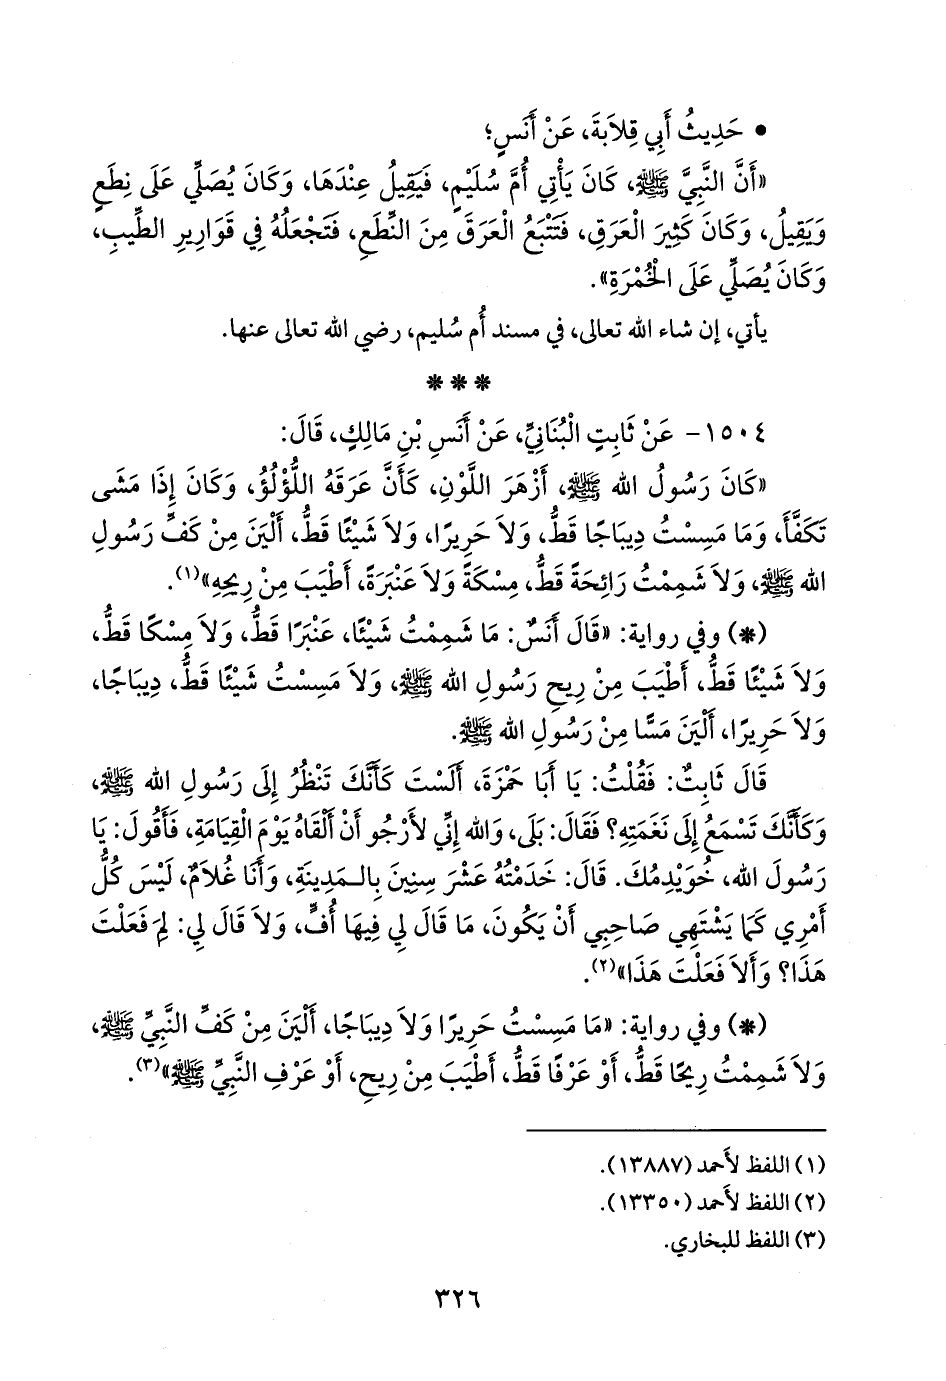 • حَدِيثُ أَبِي قِلاَبَةَ، عَنْ أَنَسٍ؛
«أَنَّ النَّبِيَّ ﷺ، كَانَ يَأْتِي أُمَّ سُلَيْمٍ، فَيَقِيلُ عِنْدَهَا، وَكَانَ يُصَلِّي عَلَى نِطَعٍ
وَيَقِيلُ، وَكَانَ كَثِيرَ الْعَرَقِ، فَتَتْبَعُ الْعَرَقَ مِنَ النِّطَعِ، فَتَجْعَلُهُ فِي قَوَارِيرِ الطِّيبِ،
وَكَانَ يُصَلِّي عَلَى الْخُمْرَةِ».
يأتي، إن شاء الله تعالى، في مسند أُم سُليم، رضي الله تعالى عنها.
* * *
١٥٠٤- عَنْ ثَابِتٍ الْبُنَانِيِّ، عَنْ أَنَسِ بْنِ مَالِكٍ، قَالَ:
«كَانَ رَسُولُ الله ﷺ، أَزْهَرَ اللَّوْنِ، كَأَنَّ عَرَقَهُ اللُّؤْلُؤُ، وَكَانَ إِذَا مَشَى
تَكَفَّأَ، وَمَا مَسِسْتُ دِيبَاجًا قَطُّ، وَلاَ حَرِيرًا، وَلاَ شَيْئًا قَطُّ، أَلْيَنَ مِنْ كَفِّ رَسُولِ
الله ﷺ، وَلاَ شَمِمْتُ رَائِحَةً قَطُّ، مِسْكَةً وَلاَ عَنْبَرَةً، أَطْيَبَ مِنْ رِيحِهِ»(١).
(*) وفي رواية: «قَالَ أَنَسٌ: مَا شَمِمْتُ شَيْئًا، عَنْبَرًا قَطُّ، وَلاَ مِسْكًا قَطُّ،
وَلاَ شَيْئًا قَطُّ، أَطْيَبَ مِنْ رِيحِ رَسُولِ الله ﷺ، وَلاَ مَسِسْتُ شَيْئًا قَطُّ، دِيبَاجًا،
وَلاَ حَرِيرًا، أَلْيَنَ مَسًّا مِنْ رَسُولِ الله ﷺ.
قَالَ ثَابِتٌ: فَقُلْتُ: يَا أَبَا حَمْزَةَ، أَلَسْتَ كَأَنَّكَ تَنْظُرُ إِلَى رَسُولِ الله ﷺ،
وَكَأَنَّكَ تَسْمَعُ إِلَى نَغَمَتِهِ؟ فَقَالَ: بَلَى، وَالله إِنِّي لأَرْجُو أَنْ أَلْقَاهُ يَوْمَ الْقِيَامَةِ، فَأَقُولَ: يَا
رَسُولَ الله، خُوَيْدِمُكَ. قَالَ: خَدَمْتُهُ عَشْرَ سِنِينَ بِالـمَدِينَةِ، وَأَنَا غُلاَمٌ، لَيْسَ كُلُّ
أَمْرِي كَمَا يَشْتَهِي صَاحِبِي أَنْ يَكُونَ، مَا قَالَ لِي فِيهَا أُفٍّ، وَلاَ قَالَ لِي: لِمَ فَعَلْتَ
هَذَا؟ وَأَلاَ فَعَلْتَ هَذَا»(٢).
(*) وفي رواية: «مَا مَسِسْتُ حَرِيرًا وَلاَ دِيبَاجًا، أَلْيَنَ مِنْ كَفِّ النَّبِيِّ ﷺ،
وَلاَ شَمِمْتُ رِيحًا قَطُّ، أَوْ عَرْفًا قَطُّ، أَطْيَبَ مِنْ رِيحِ، أَوْ عَرْفِ النَّبِيِّ ﷺ»(٣).
(١) اللفظ لأَحمد (١٣٨٨٧).
(٢) اللفظ لأَحمد (١٣٣٥٠).
(٣) اللفظ للبخاري.
٣٢٦